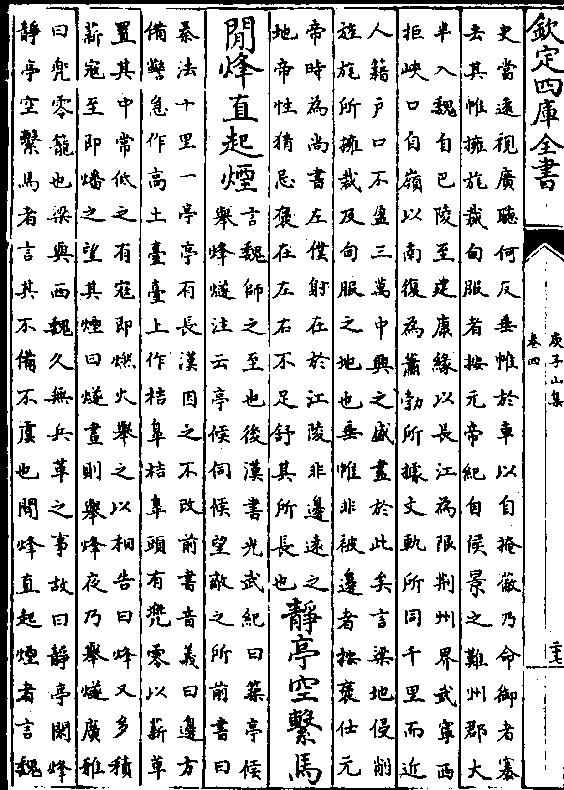 欽定四庫全書
庾子山集
卷四
史當遠視廣聽何反垂帷於車以自掩蔽乃命御者褰
去其帷擁旄裁甸服者按元帝紀自侯景之難州郡大
半入魏自巴陵至建康緣以長江為限荆州界武寧西
拒峽口自嶺以南復為蕭勃所據文軌所同千里而近
人籍戶口不盈三萬中興之盛盡於此矣言梁地侵削
旌旄所擁裁及甸服之地也垂帷非被邊者按褒仕元
帝時為尚書左僕射在於江陵非邊遠之
地帝性猜忌褒在左右不足舒其所長也
靜亭空繫馬
閒烽直起煙
言魏師之至也後漢書光武紀曰築亭候
舉烽燧注云亭候伺候望敵之所前書曰
秦法十里一亭亭有長漢因之不改前書音義曰邊方
備警急作高土臺臺上作桔臯桔臯頭有兜零以薪草
置其中常低之有寇即燃火舉之以相告曰烽又多積
薪寇至即燔之望其煙曰燧晝則舉烽夜乃舉燧廣雅
曰兜零籠也梁與西魏久無兵革之事故曰靜亭閒烽
靜亭空繫馬者言其不備不虞也閒烽直起煙者言魏